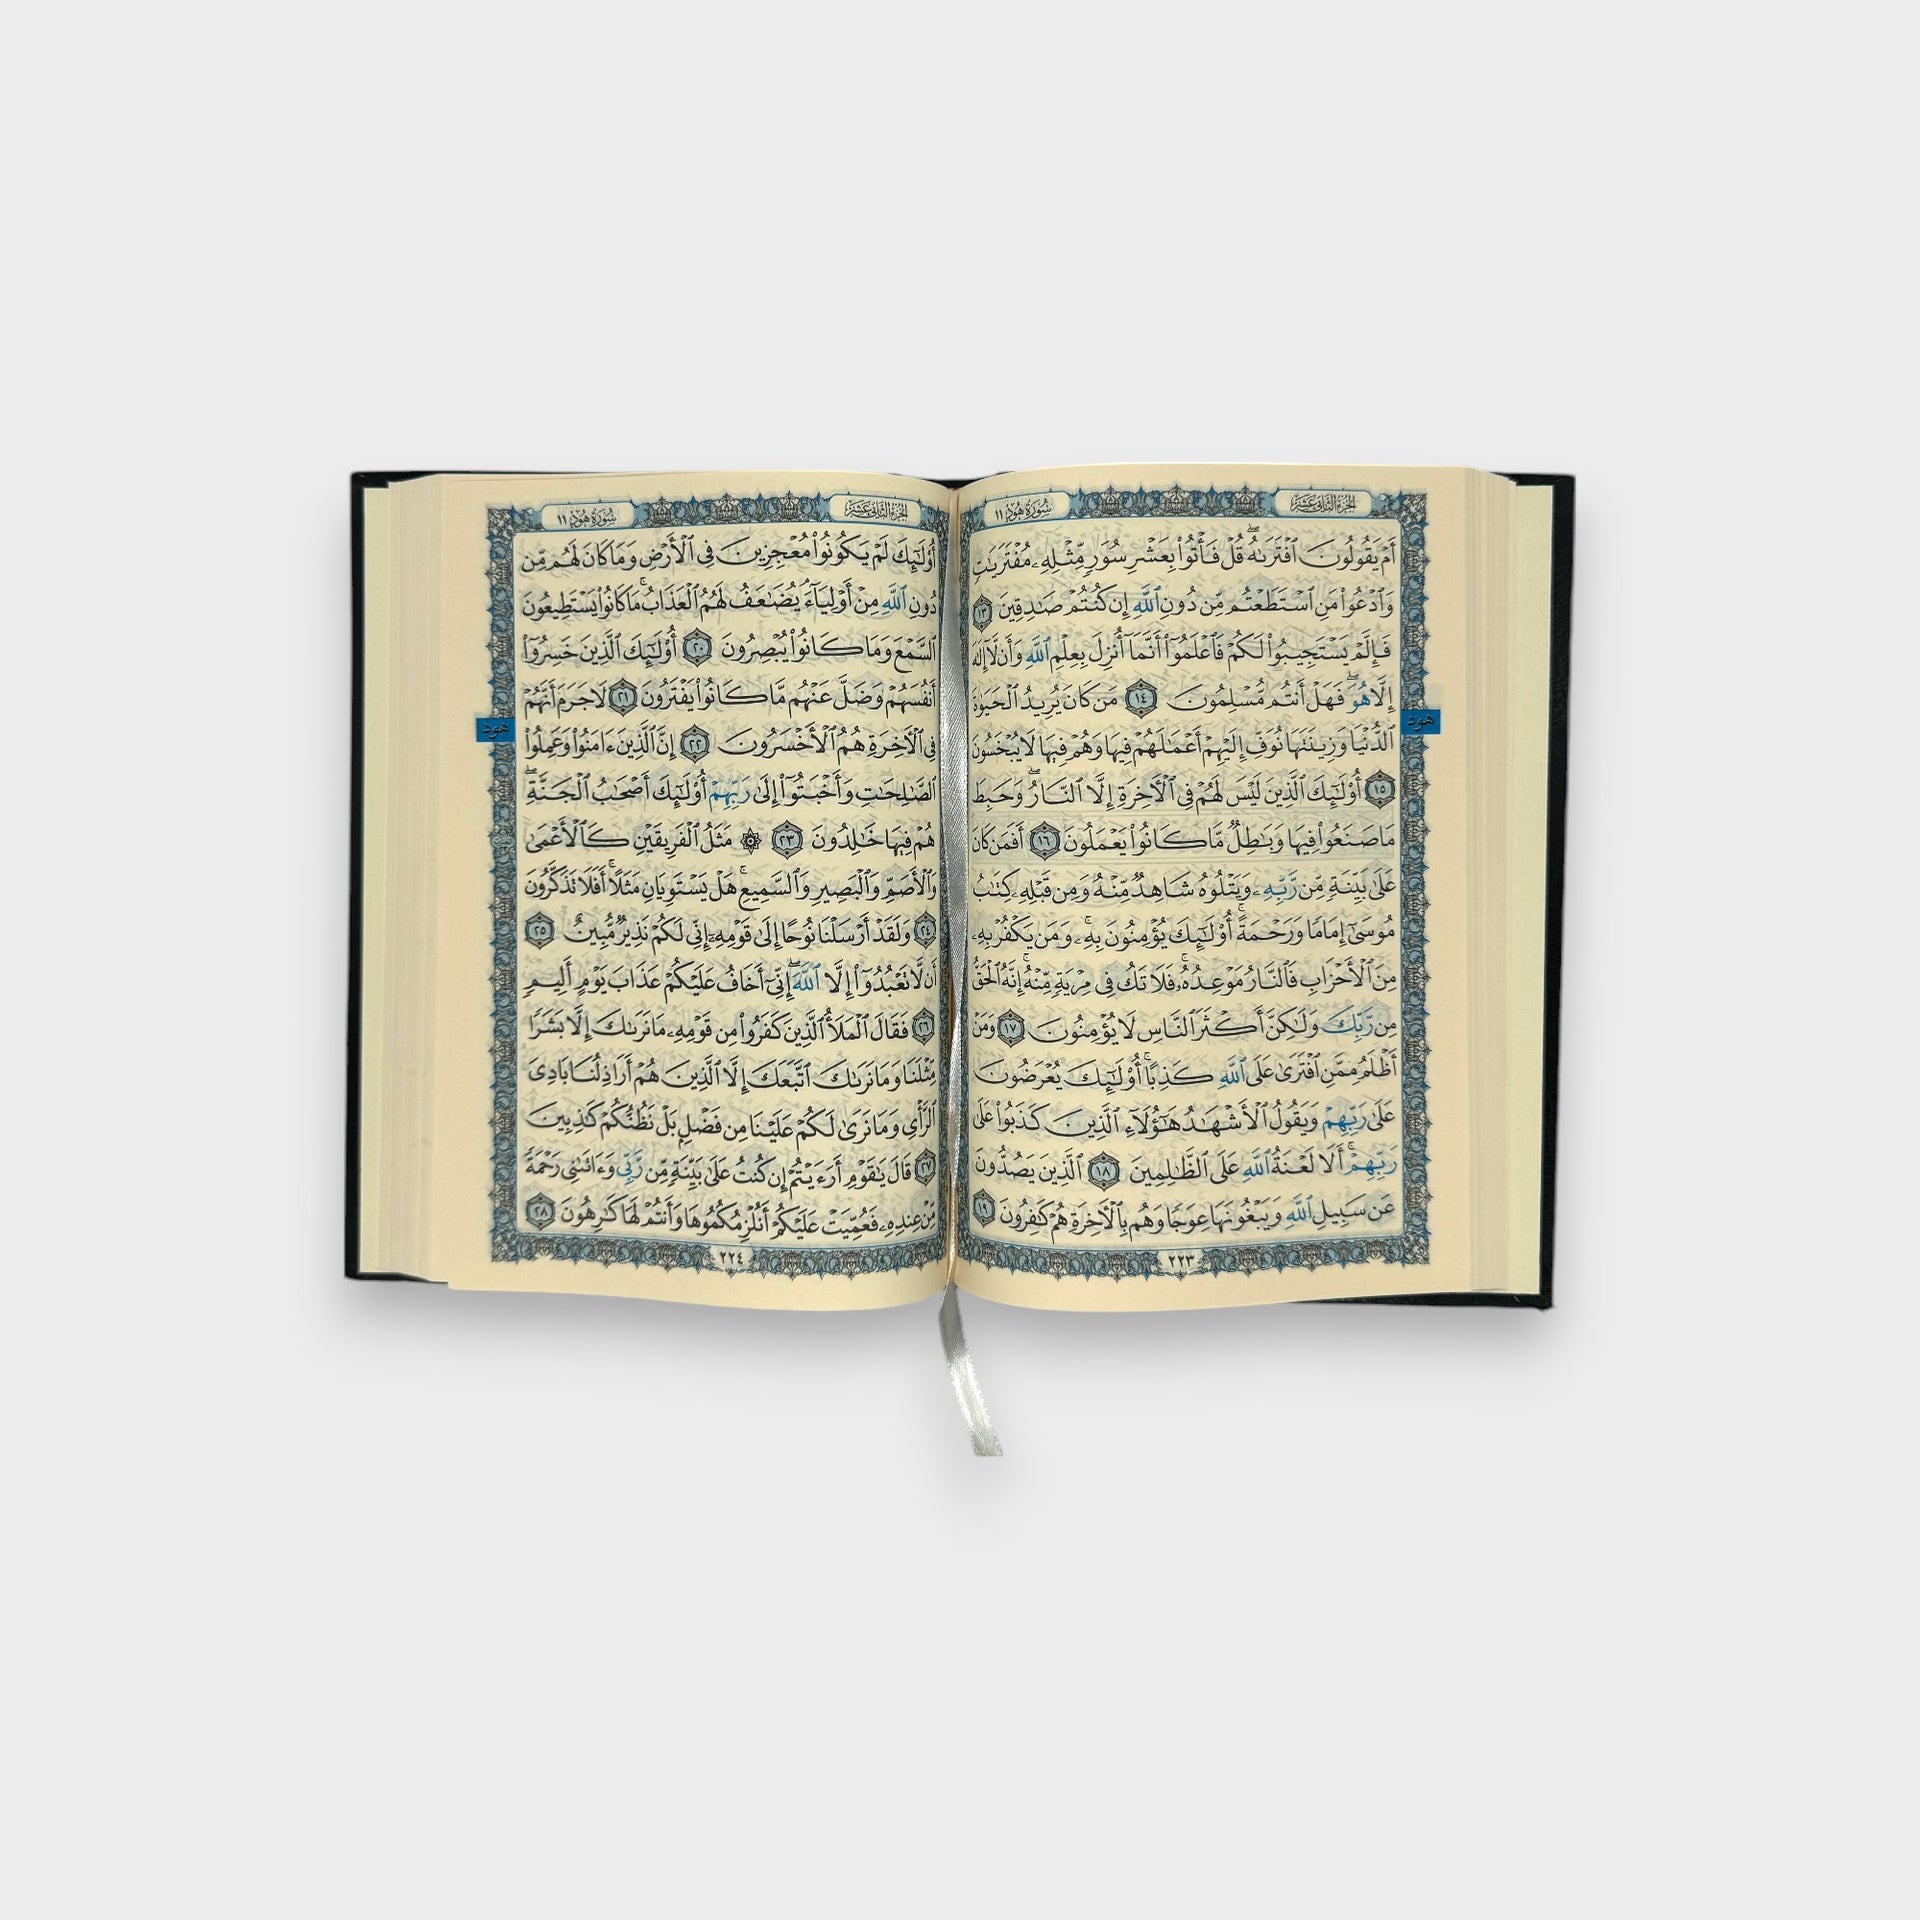 الجزء الثاني عشر
سورة هود ١١
أَمْ يَقُولُونَ ٱفْتَرَىٰهُ ۖ قُلْ فَأْتُوا۟ بِعَشْرِ سُوَرٍ مِّثْلِهِۦ مُفْتَرَيَٰتٍ
وَٱدْعُوا۟ مَنِ ٱسْتَطَعْتُم مِّن دُونِ ٱللَّهِ إِن كُنتُمْ صَٰدِقِينَ ١٣
فَإِلَّمْ يَسْتَجِيبُوا۟ لَكُمْ فَٱعْلَمُوٓا۟ أَنَّمَآ أُنزِلَ بِعِلْمِ ٱللَّهِ وَأَن لَّآ إِلَٰهَ
إِلَّا هُوَ ۖ فَهَلْ أَنتُم مُّسْلِمُونَ ١٤ مَن كَانَ يُرِيدُ ٱلْحَيَوٰةَ
ٱلدُّنْيَا وَزِينَتَهَا نُوَفِّ إِلَيْهِمْ أَعْمَٰلَهُمْ فِيهَا وَهُمْ فِيهَا لَا يُبْخَسُونَ
١٥ أُو۟لَٰٓئِكَ ٱلَّذِينَ لَيْسَ لَهُمْ فِى ٱلْءَاخِرَةِ إِلَّا ٱلنَّارُ ۖ وَحَبِطَ
مَا صَنَعُوا۟ فِيهَا وَبَٰطِلٌ مَّا كَانُوا۟ يَعْمَلُونَ ١٦ أَفَمَن كَانَ
عَلَىٰ بَيِّنَةٍ مِّن رَّبِّهِۦ وَيَتْلُوهُ شَاهِدٌ مِّنْهُ وَمِن قَبْلِهِۦ كِتَٰبُ
مُوسَىٰٓ إِمَامًا وَرَحْمَةً ۚ أُو۟لَٰٓئِكَ يُؤْمِنُونَ بِهِۦ ۚ وَمَن يَكْفُرْ بِهِۦ
مِنَ ٱلْأَحْزَابِ فَٱلنَّارُ مَوْعِدُهُۥ ۚ فَلَا تَكُ فِى مِرْيَةٍ مِّنْهُ ۚ إِنَّهُ ٱلْحَقُّ
مِن رَّبِّكَ وَلَٰكِنَّ أَكْثَرَ ٱلنَّاسِ لَا يُؤْمِنُونَ ١٧ وَمَنْ
أَظْلَمُ مِمَّنِ ٱفْتَرَىٰ عَلَى ٱللَّهِ كَذِبًا ۚ أُو۟لَٰٓئِكَ يُعْرَضُونَ
عَلَىٰ رَبِّهِمْ وَيَقُولُ ٱلْأَشْهَٰدُ هَٰٓؤُلَآءِ ٱلَّذِينَ كَذَبُوا۟ عَلَىٰ
رَبِّهِمْ ۚ أَلَا لَعْنَةُ ٱللَّهِ عَلَى ٱلظَّٰلِمِينَ ١٨ ٱلَّذِينَ يَصُدُّونَ
عَن سَبِيلِ ٱللَّهِ وَيَبْغُونَهَا عِوَجًا وَهُم بِٱلْءَاخِرَةِ هُمْ كَٰفِرُونَ ١٩
٢٢٣
هود
الجزء الثاني عشر
سورة هود ١١
أُو۟لَٰٓئِكَ لَمْ يَكُونُوا۟ مُعْجِزِينَ فِى ٱلْأَرْضِ وَمَا كَانَ لَهُم مِّن
دُونِ ٱللَّهِ مِنْ أَوْلِيَآءَ ۘ يُضَٰعَفُ لَهُمُ ٱلْعَذَابُ ۚ مَا كَانُوا۟ يَسْتَطِيعُونَ
ٱلسَّمْعَ وَمَا كَانُوا۟ يُبْصِرُونَ ٢٠ أُو۟لَٰٓئِكَ ٱلَّذِينَ خَسِرُوٓا۟
أَنفُسَهُمْ وَضَلَّ عَنْهُم مَّا كَانُوا۟ يَفْتَرُونَ ٢١ لَا جَرَمَ أَنَّهُمْ
فِى ٱلْءَاخِرَةِ هُمُ ٱلْأَخْسَرُونَ ٢٢ إِنَّ ٱلَّذِينَ ءَامَنُوا۟ وَعَمِلُوا۟
ٱلصَّٰلِحَٰتِ وَأَخْبَتُوٓا۟ إِلَىٰ رَبِّهِمْ أُو۟لَٰٓئِكَ أَصْحَٰبُ ٱلْجَنَّةِ ۖ
هُمْ فِيهَا خَٰلِدُونَ ٢٣ ۞ مَثَلُ ٱلْفَرِيقَيْنِ كَٱلْأَعْمَىٰ
وَٱلْأَصَمِّ وَٱلْبَصِيرِ وَٱلسَّمِيعِ ۚ هَلْ يَسْتَوِيَانِ مَثَلًا ۚ أَفَلَا تَذَكَّرُونَ
٢٤ وَلَقَدْ أَرْسَلْنَا نُوحًا إِلَىٰ قَوْمِهِۦٓ إِنِّى لَكُمْ نَذِيرٌ مُّبِينٌ ٢٥
أَن لَّا تَعْبُدُوٓا۟ إِلَّا ٱللَّهَ ۖ إِنِّىٓ أَخَافُ عَلَيْكُمْ عَذَابَ يَوْمٍ أَلِيمٍ
٢٦ فَقَالَ ٱلْمَلَأُ ٱلَّذِينَ كَفَرُوا۟ مِن قَوْمِهِۦ مَا نَرَىٰكَ إِلَّا بَشَرًا
مِّثْلَنَا وَمَا نَرَىٰكَ ٱتَّبَعَكَ إِلَّا ٱلَّذِينَ هُمْ أَرَاذِلُنَا بَادِىَ
ٱلرَّأْىِ وَمَا نَرَىٰ لَكُمْ عَلَيْنَا مِن فَضْلٍۭ بَلْ نَظُنُّكُمْ كَٰذِبِينَ
٢٧ قَالَ يَٰقَوْمِ أَرَءَيْتُمْ إِن كُنتُ عَلَىٰ بَيِّنَةٍ مِّن رَّبِّى وَءَاتَىٰنِى رَحْمَةً
مِّنْ عِندِهِۦ فَعُمِّيَتْ عَلَيْكُمْ أَنُلْزِمُكُمُوهَا وَأَنتُمْ لَهَا كَٰرِهُونَ ٢٨
٢٢٤
هود